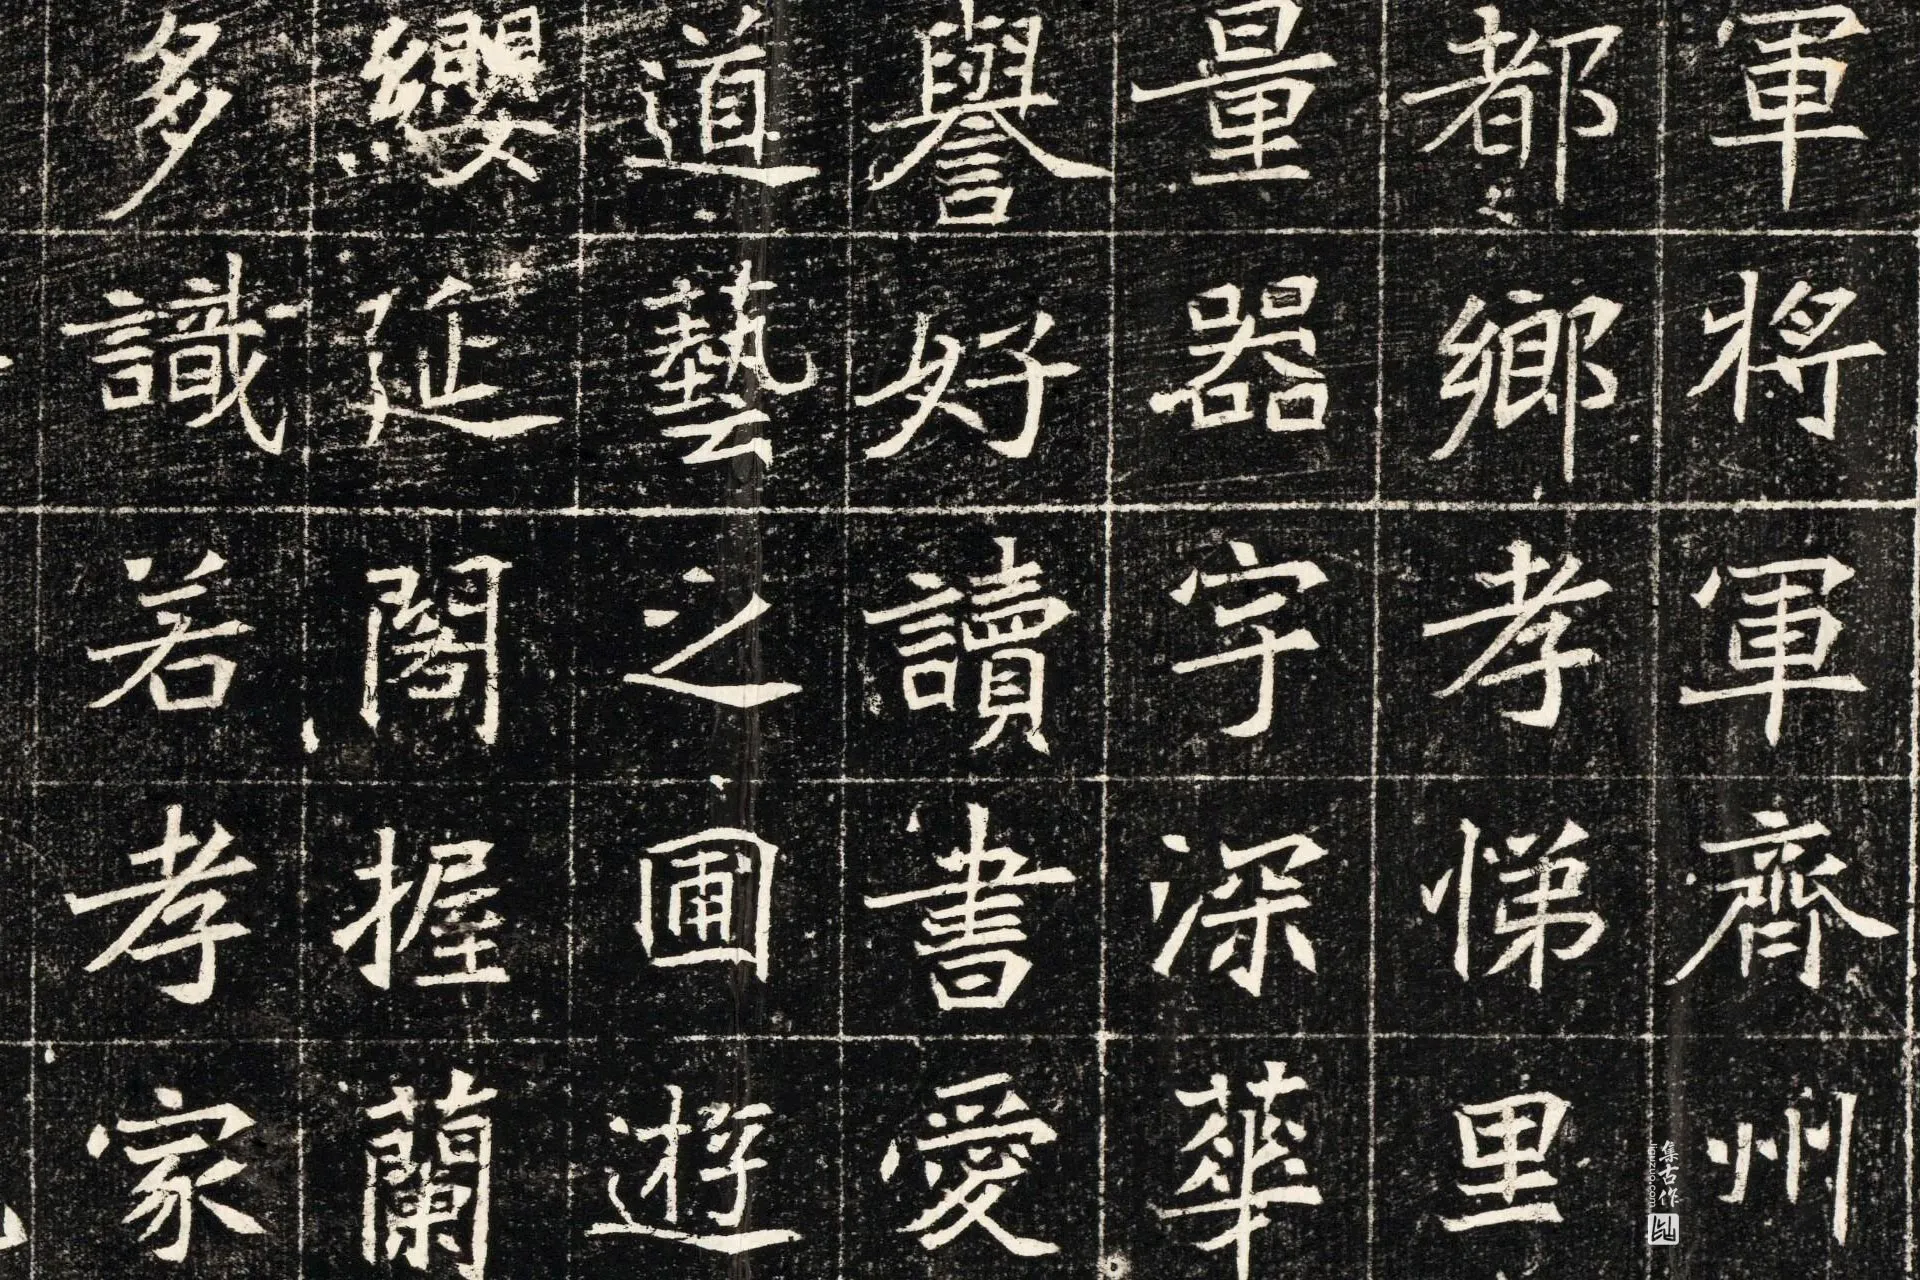 軍將軍齊州
都鄉孝悌里
量器宇深華
譽好讀書愛
道藝之圃遊
纓延閣握蘭
多識若孝家
集古作